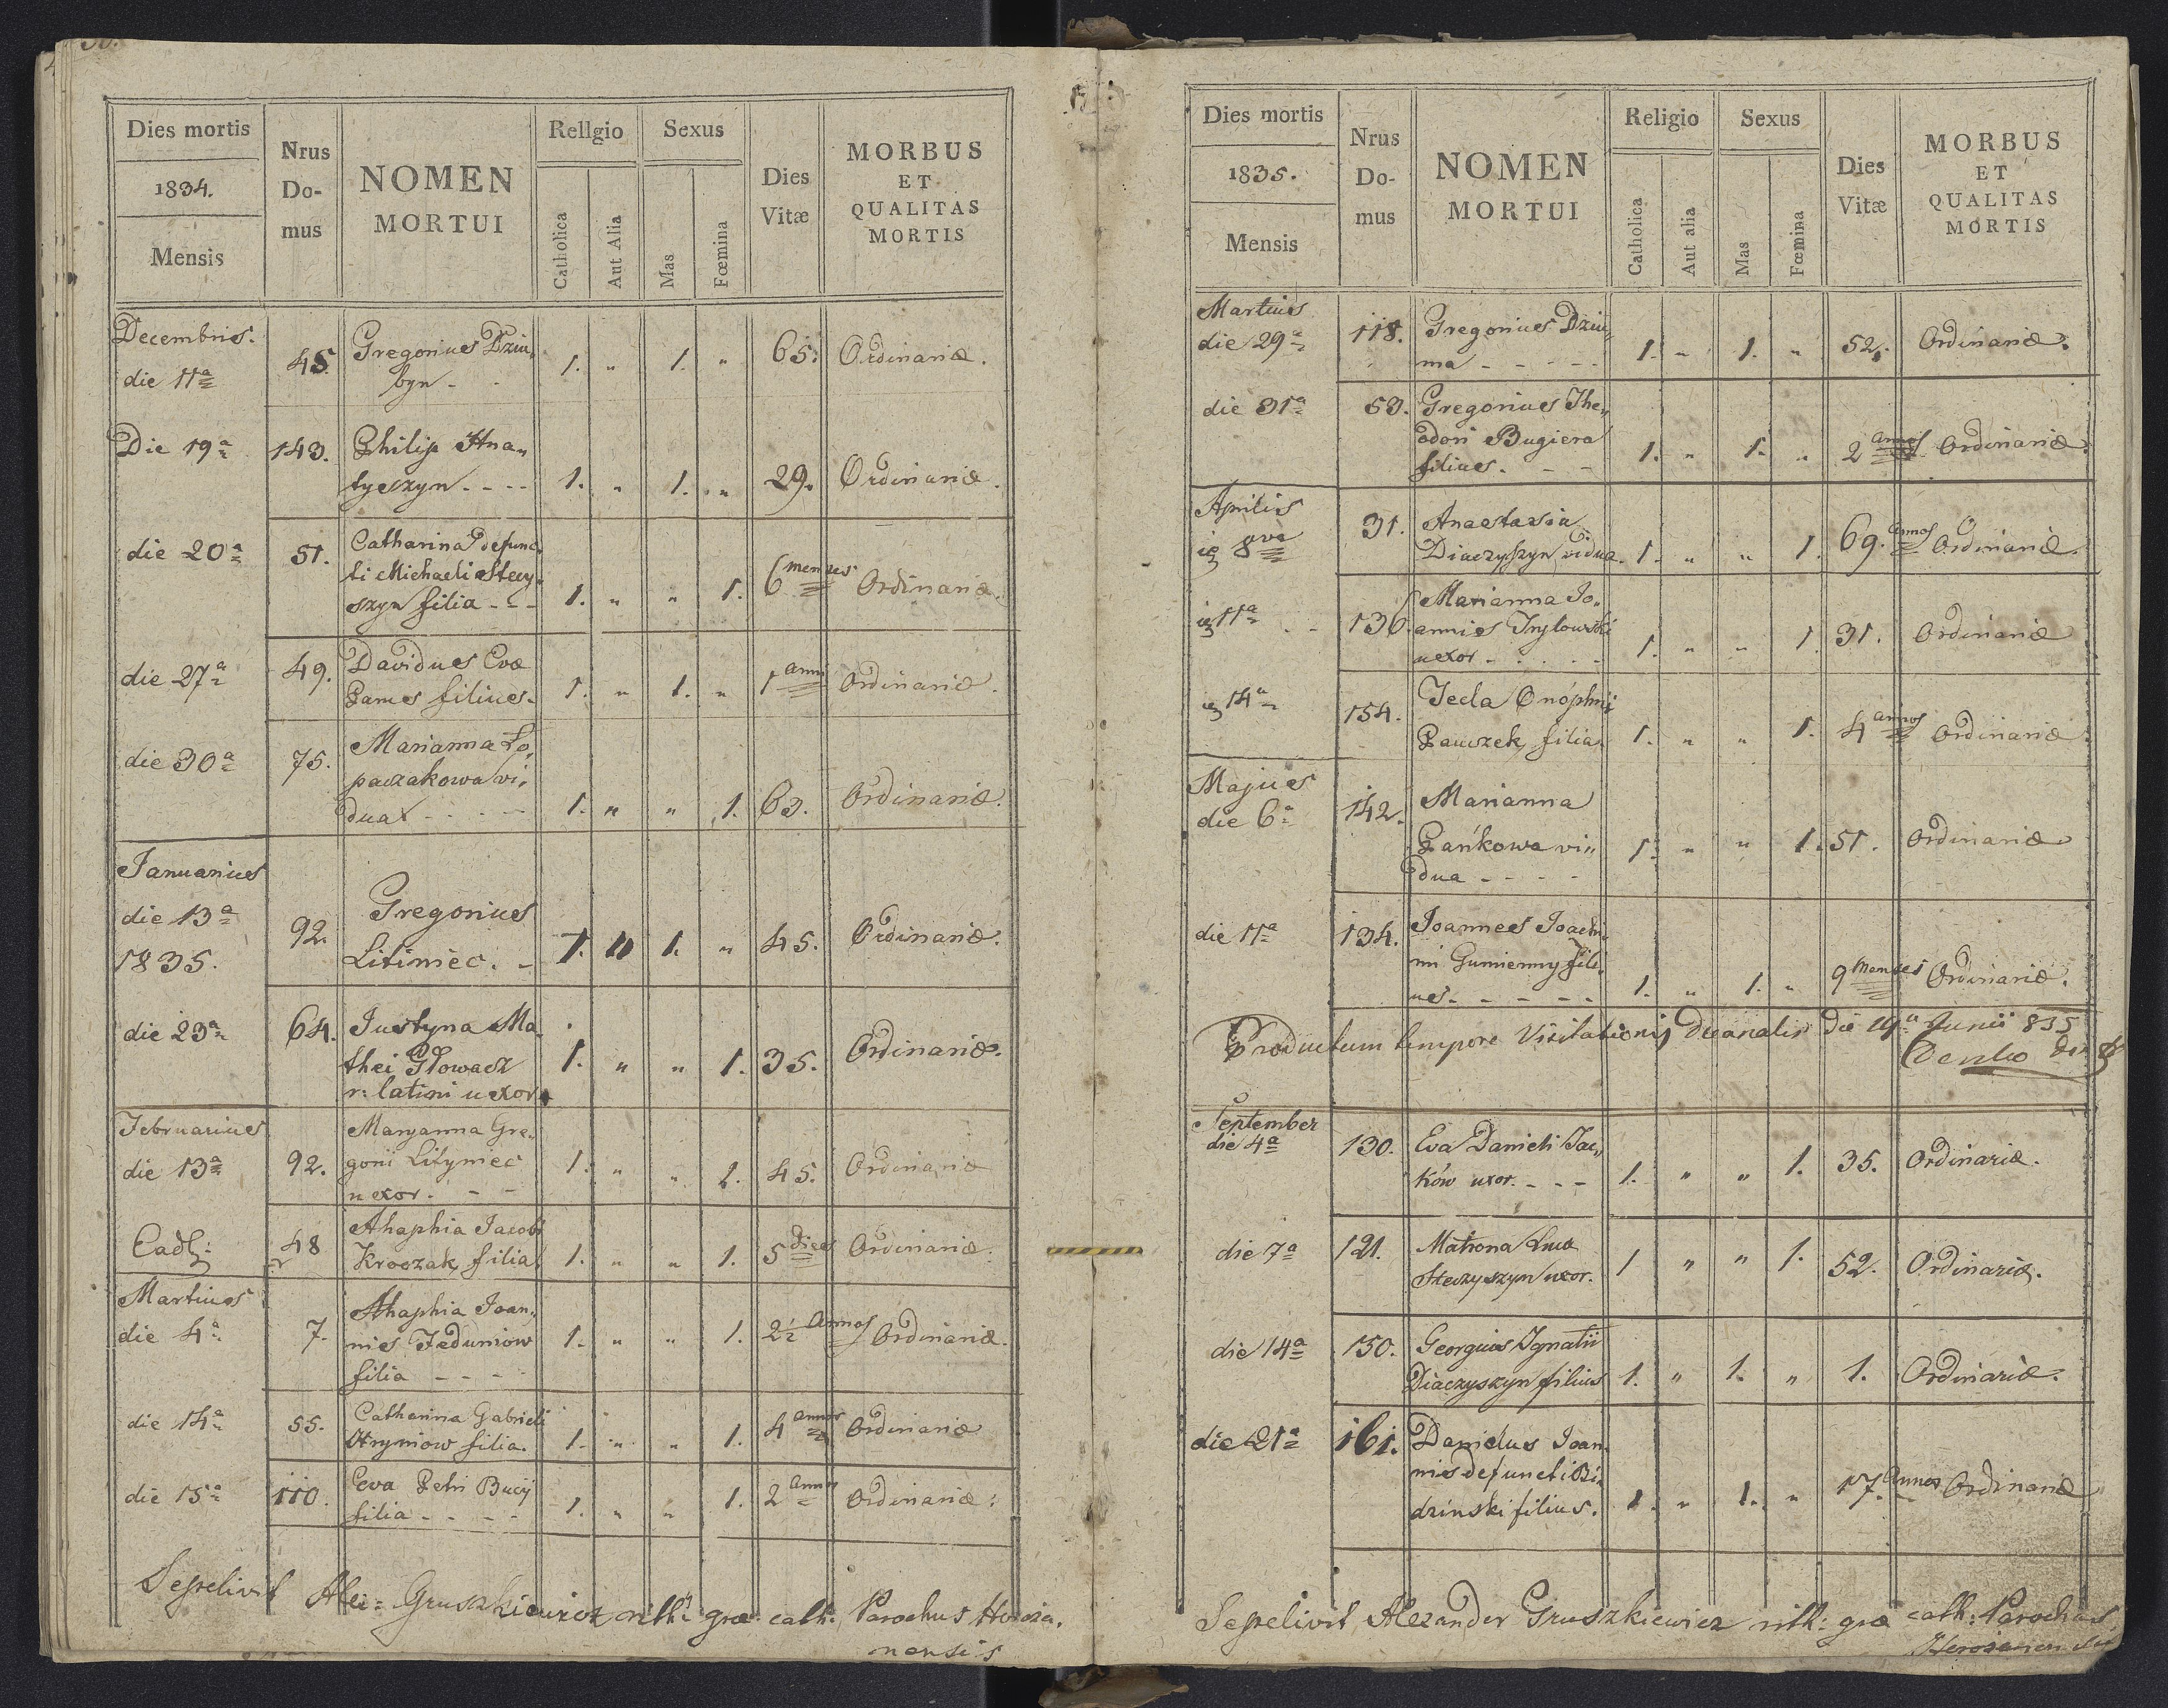 Dies mortis
1834.
Mensis
Nrus
Do-
mus
NOMEN
MORTUI
Rellgio
Catholica
Aut Alia
Sexus
Mas
Fœmina
Dies
Vitæ
MORBUS
ET
QUALITAS
MORTIS
Decembris.
die 11ª 45. Gregorius Dziu„
byn - 1. „ 1. „ 65. Ordinariæ.
Die 19ª 143. Philip Hna„
tyszyn - - - - 1. „ 1. „ 29. Ordinariæ.
die 20ª 51. Catharina defunc„
ti Michaeli Stecy„
szyn filia - - - 1. „ „ 1. 6 menses Ordinariæ.
die 27ª 49. Davidus Evæ
Pames filius. 1. „ 1. „ 1 anni Ordinariæ.
die 30ª 75. Marianna Lo„
paczakowa vi„
dua - - - - 1. „ „ 1. 63. Ordinariæ.
Januarius
die 13ª
1835.
92. Gregorius
Litiniec. - 1. „ 1. „ 45. Ordinariæ.
die 23ª 64. Justyna Ma„
thei Głowacz
r: latini uxor. 1. „ „ 1. 35. Ordinariæ.
Februarius
die 13ª 92. Maryanna Gre„
gorii Lityniec
uxor. - - 1. „ „ 1. 45. Ordinariæ
Ead: 48 Ahaphia Jacobi
Kroczak, filia 1. „ „ 1. 5 dies Ordinariæ.
Martius
die 4ª 7. Ahaphia Joan„
nis Feduniow
filia - - - 1. „ „ 1. 2½ Annos Ordinariæ.
die 14ª 55. Catharina Gabrieli
Hryniow filia. 1. „ „ 1. 4 annos Ordinariæ
die 15ª 110. Eva Petri Bucij
filia - - - - 1. „ „ 1. 2 annos Ordinariæ.
Sepelivit Alex: Gruszkiewicz rith: græ: cath: Parochus
nensis
Dies mortis
1835.
Mensis
Nrus
Do-
mus
NOMEN
MORTUI
Religio
Catholica
Aut alia
Sexus
Mas
Fœmina
Dies
Vitæ
MORBUS
ET
QUALITAS
MORTIS
Martius
die 29ª 118. Gregorius Dziu„
ma - - - - - 1. „ 1. „ 52. Ordinariæ.
die 31ª 53. Gregorius The„
odori Bugiera
filius. - - 1. „ 1. „ 2 annos Ordinariæ.
Aprilis
8va 31. Anastasia
Diaczyszyn vidua. 1. „ „ 1. 69. annos Ordinariæ.
11ª 136. Marianna Jo„
annis Trylowski
uxor - - - - - 1. „ „ 1. 31. Ordinariæ
14ª 154. Tecla Onóphrii
Pauczek, filia. 1. „ „ 1. 4 annos Ordinariæ.
Majus
die 6ª 142. Marianna
Pańkowa vi„
dua - - - - 1. „ „ 1. 51. Ordinariæ
die 11ª 134. Joannes Joachi„
mi Gumienny fili„
us. - - - - - 1. „ 1. „ 9 menses Ordinariæ.
Productum tempore Visitationis Decanalis die 19ª Junii 835
September
die 4ª 130. Eva Danieli Jac„
ków uxor. - - - 1. „ „ 1. 35. Ordinariæ.
die 7ª 121. Matrona Lucæ
Steczyszyn uxor. 1 „ „ 1. 52. Ordinariæ.
die 14ª 150. Georgius Ignatii
Diaczyszyn filius 1. „ 1. „ 1. Ordinariæ.
die 21ª 161. Danielus Joan„
nis defuncti Bi„
dzinski filius. 1. „ 1. „ 17. annos Ordinariæ
Sepelivit Alexander Gruszkiewicz rith: græ cath: Parochus